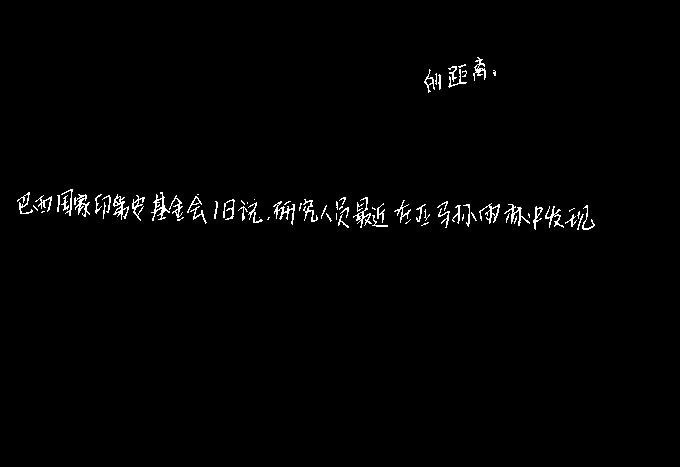 的距离。
巴西国家印第安基金会1日说,研究人员最近在亚马孙雨林中发现